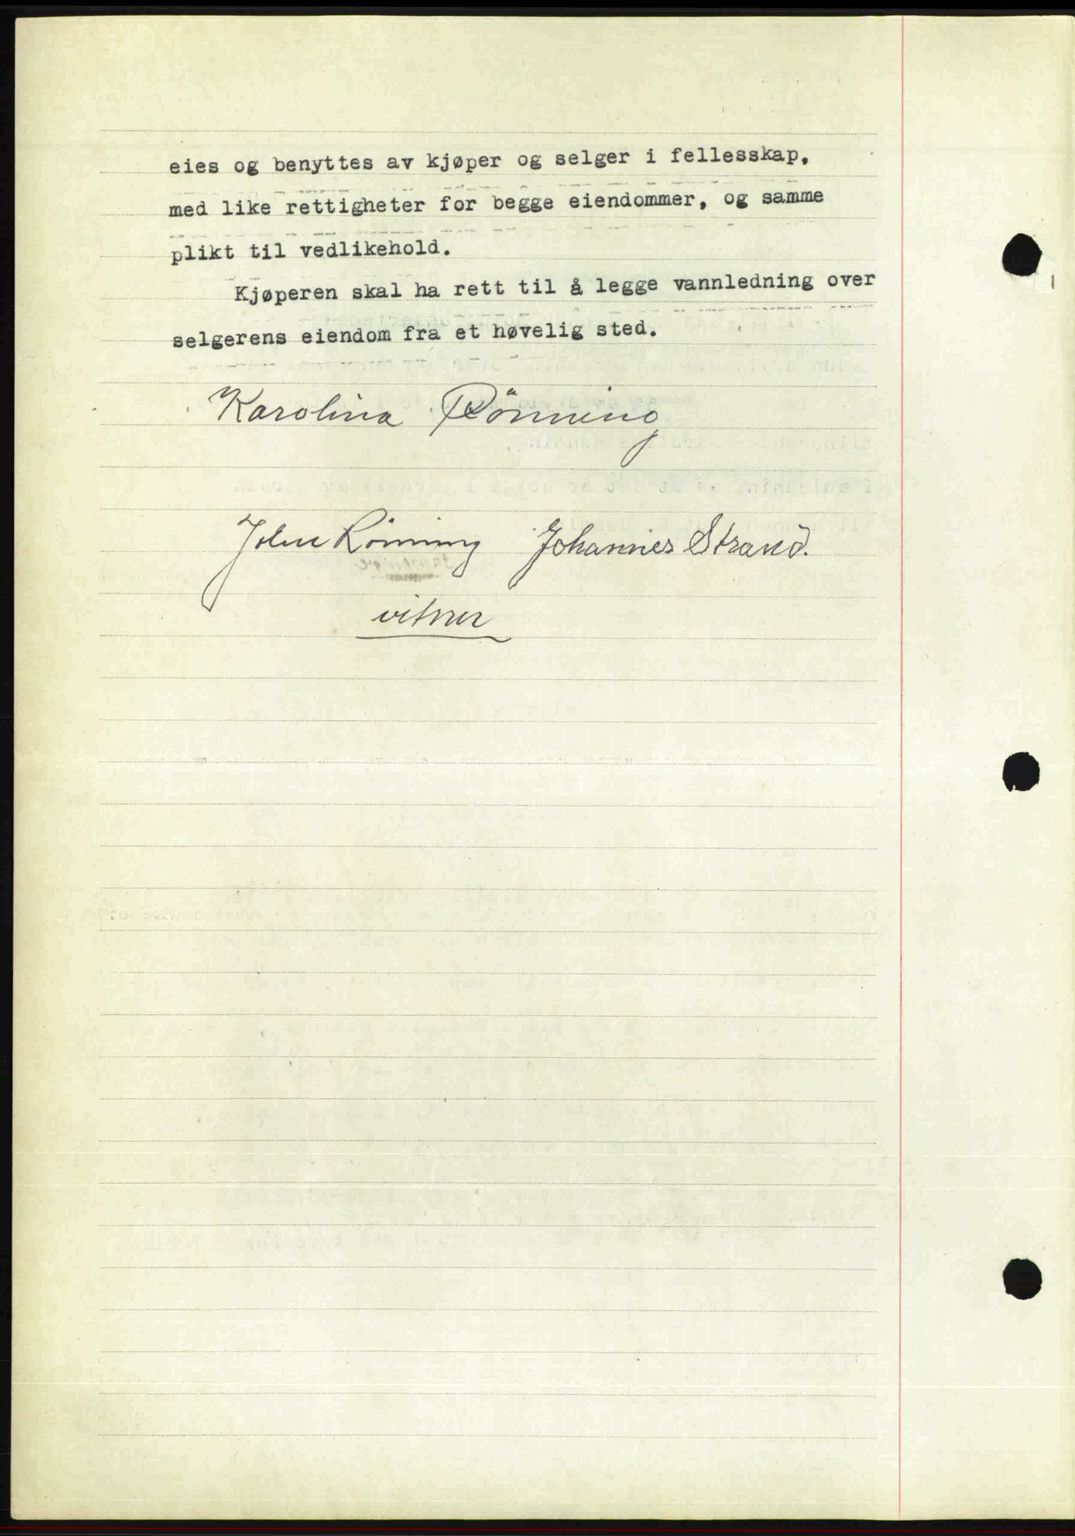 eies og benyttes av kjøper og selger i fellesskap,
med like rettigheter for begge eiendommer, og samme
plikt til vedlikehold.
Kjøperen skal ha rett til å legge vannledning over
selgerens eiendom fra et høvelig sted.
Karolina Rönning
John Rönning Johannes Strand.
vitner